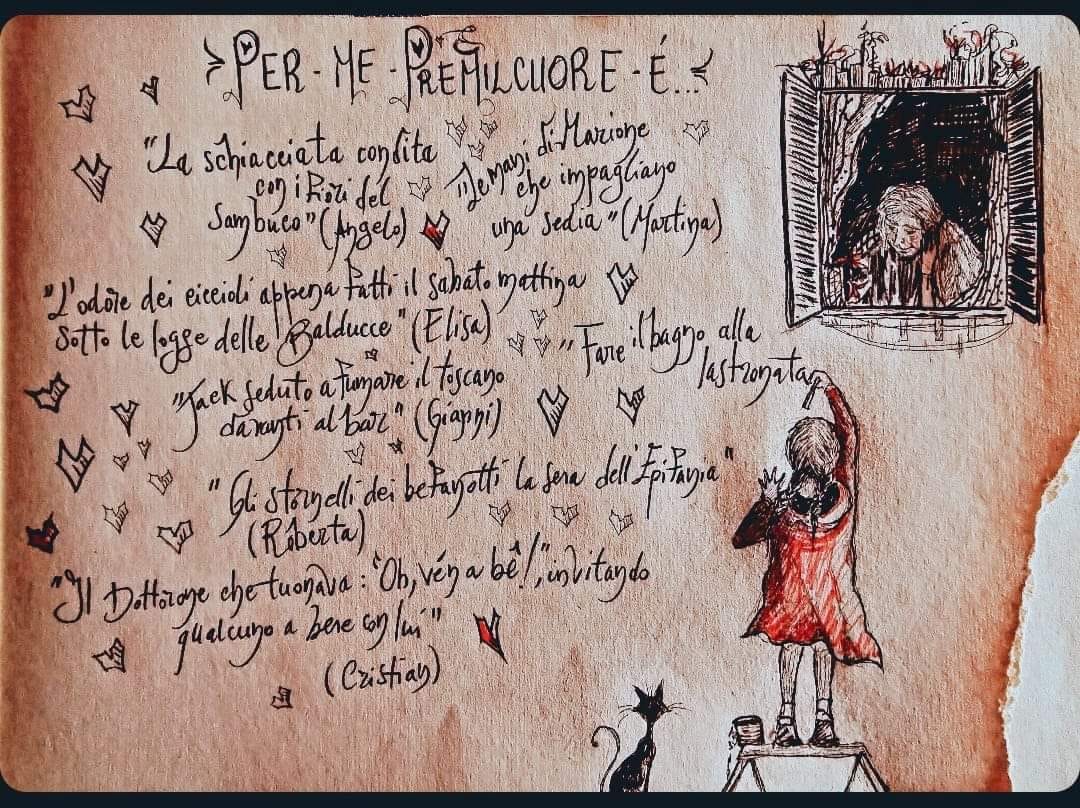 PER - ME - PREMILCUORE - É...
"La schiacciata condita
con i fiori del
Sambuco" (Angelo)
"Le mani di Marione
che impagliano
una sedia" (Martina)
"L'odore dei ciccioli appena fatti il sabato mattina
sotto le logge delle Balducce" (Elisa)
"Fare il bagno alla
lastronata
"Jack seduto a fumare il toscano
davanti al bar" (Gianni)
"Gli stornelli dei befanotti la sera dell'Epifania"
(Roberta)
"Il Dottorone che tuonava: "Oh, vén a bê!", invitando
qualcuno a bere con lui"
(Cristian)